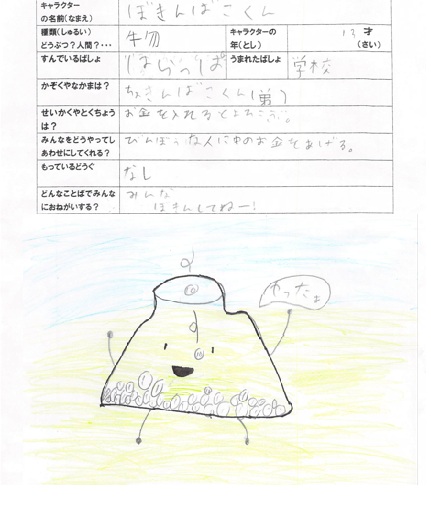 キャラクター
の名前(なまえ)
ぼきんばこくん
種類(しゅるい)
どうぶつ?人間?・・・
キャラクターの
年(とし)
13才
(さい)
すんでいるばしょ
はらっぱ
うまれたばしょ
学校
かぞくやなかまは?
ちょきんばこくん(弟)
せいかくやとくちょう
は?
お金を入れるとよろこぶ。
みんなをどうやってし
あわせにしてくれる?
びんぼうな人に中のお金をあげる。
もっているどうぐ
なし
どんなことばでみんな
におねがいする?
みんな
ぼきんしてねー!
やったぁ